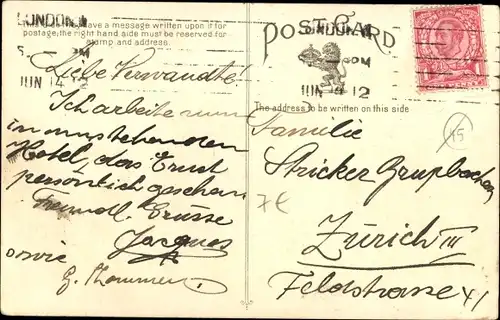 LONDON.W
have a message written upon it for
postage, the right hand side must be reserved for
stamp and address.
PM
JUN 14 12
Liebe Verwandte!
Ich arbeite nun
in umstehenden
Hotel, das Ernst
persönlich gesehen
Freundl. Grüsse
Jacques
sowie
G. Thommen
POST CARD
LONDON.W
PM
JUN 14 12
The address to be written on this side
Familie
Stricker Grupbacher
Zürich III
Feldstrasse 41
75
7€